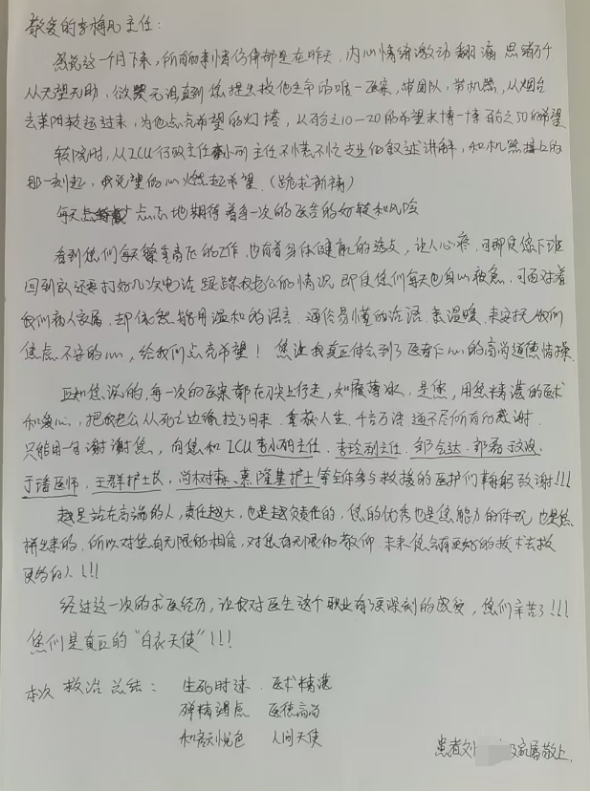 敬爱的李梅凡主任：
感觉这一个月下来，所有的事情仿佛都是在昨天，内心情绪激动翻涌 思绪万千
从无望无助，做梦无泪直到您提出救他生命的唯一医案，带团队，带机器，从烟台
去莱阳转运过来，为他点亮希望的灯塔，从百分之10—20的希望来博一博百分之50的希望
转院时，从ICU 主任 主任不慌不忙专业的叙述讲解，和机器接上的
那一刻起，我绝望的心燃起希望。（跪求祈祷）
每天点 点点地期待着每一次的医治的好转和风险
看到您们每天繁重高压的工作，也有着身体健康的透支，让人心疼，可即使您下班
回到家还要打好几次电话 跟踪我老公的情况，即使您们每天也身心疲惫，可面对着
我们病人家属，却依然能用温和的语言，通俗易懂的话语，表温暖，来安抚我们
焦虑不安的心，给我们点亮希望！您让我真正体会到了医者仁心的高尚道德情操
正如您说的，每一次的医案都在刀尖上行走，如履薄冰，是您，用您精湛的医术
和爱心，把我老公从死亡边缘拉了回来，重获人生，千言万语 道不尽所有的感谢
只能用一句谢谢您，向您和ICU李小明主任、李玲副主任、邹会达、郭磊
于潘医师、王群护士长、尚树梅、慕隆基护士等全体参与救援的医护们鞠躬致谢!!!
越是站在高端的人，责任越大，也是越负责任的，您的优秀也是您能力的体现，也是您
拼出来的，所以对您有无限的相信，对您有无限的敬仰，未来您会有更好的技术去救
更多的人!!!
经过这一次的求医经历，让我对医生这个职业有了更深刻的感受，您们辛苦了!!!
您们是真正的“白衣天使”!!!
本次 救治 总结： 生死时速、医术精湛
殚精竭虑 医德高尚
和颜悦色 人间天使
患者刘 及家属敬上